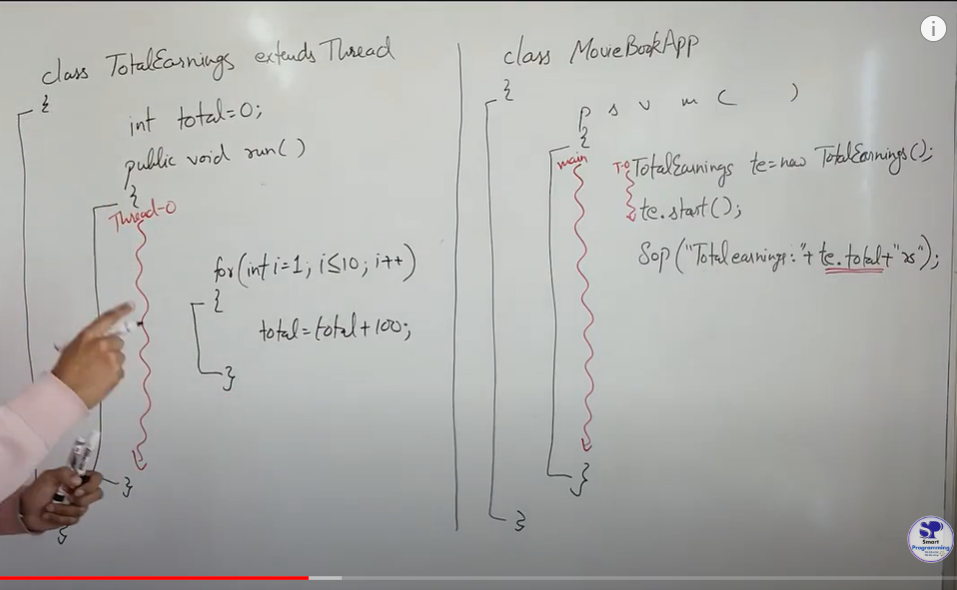 class TotalEarnings extends Thread
{
int total=0;
public void run()
{
Thread-0
for(int i=1; i≤10; i++)
{
total=total+100;
}
}
}
class MovieBookApp
{
p s v m ( )
{
main
T-0 TotalEarnings te=new TotalEarnings();
te.start();
Sop("Total earnings:"+te.total+"rs");
}
}
i
SP
Smart
Programming